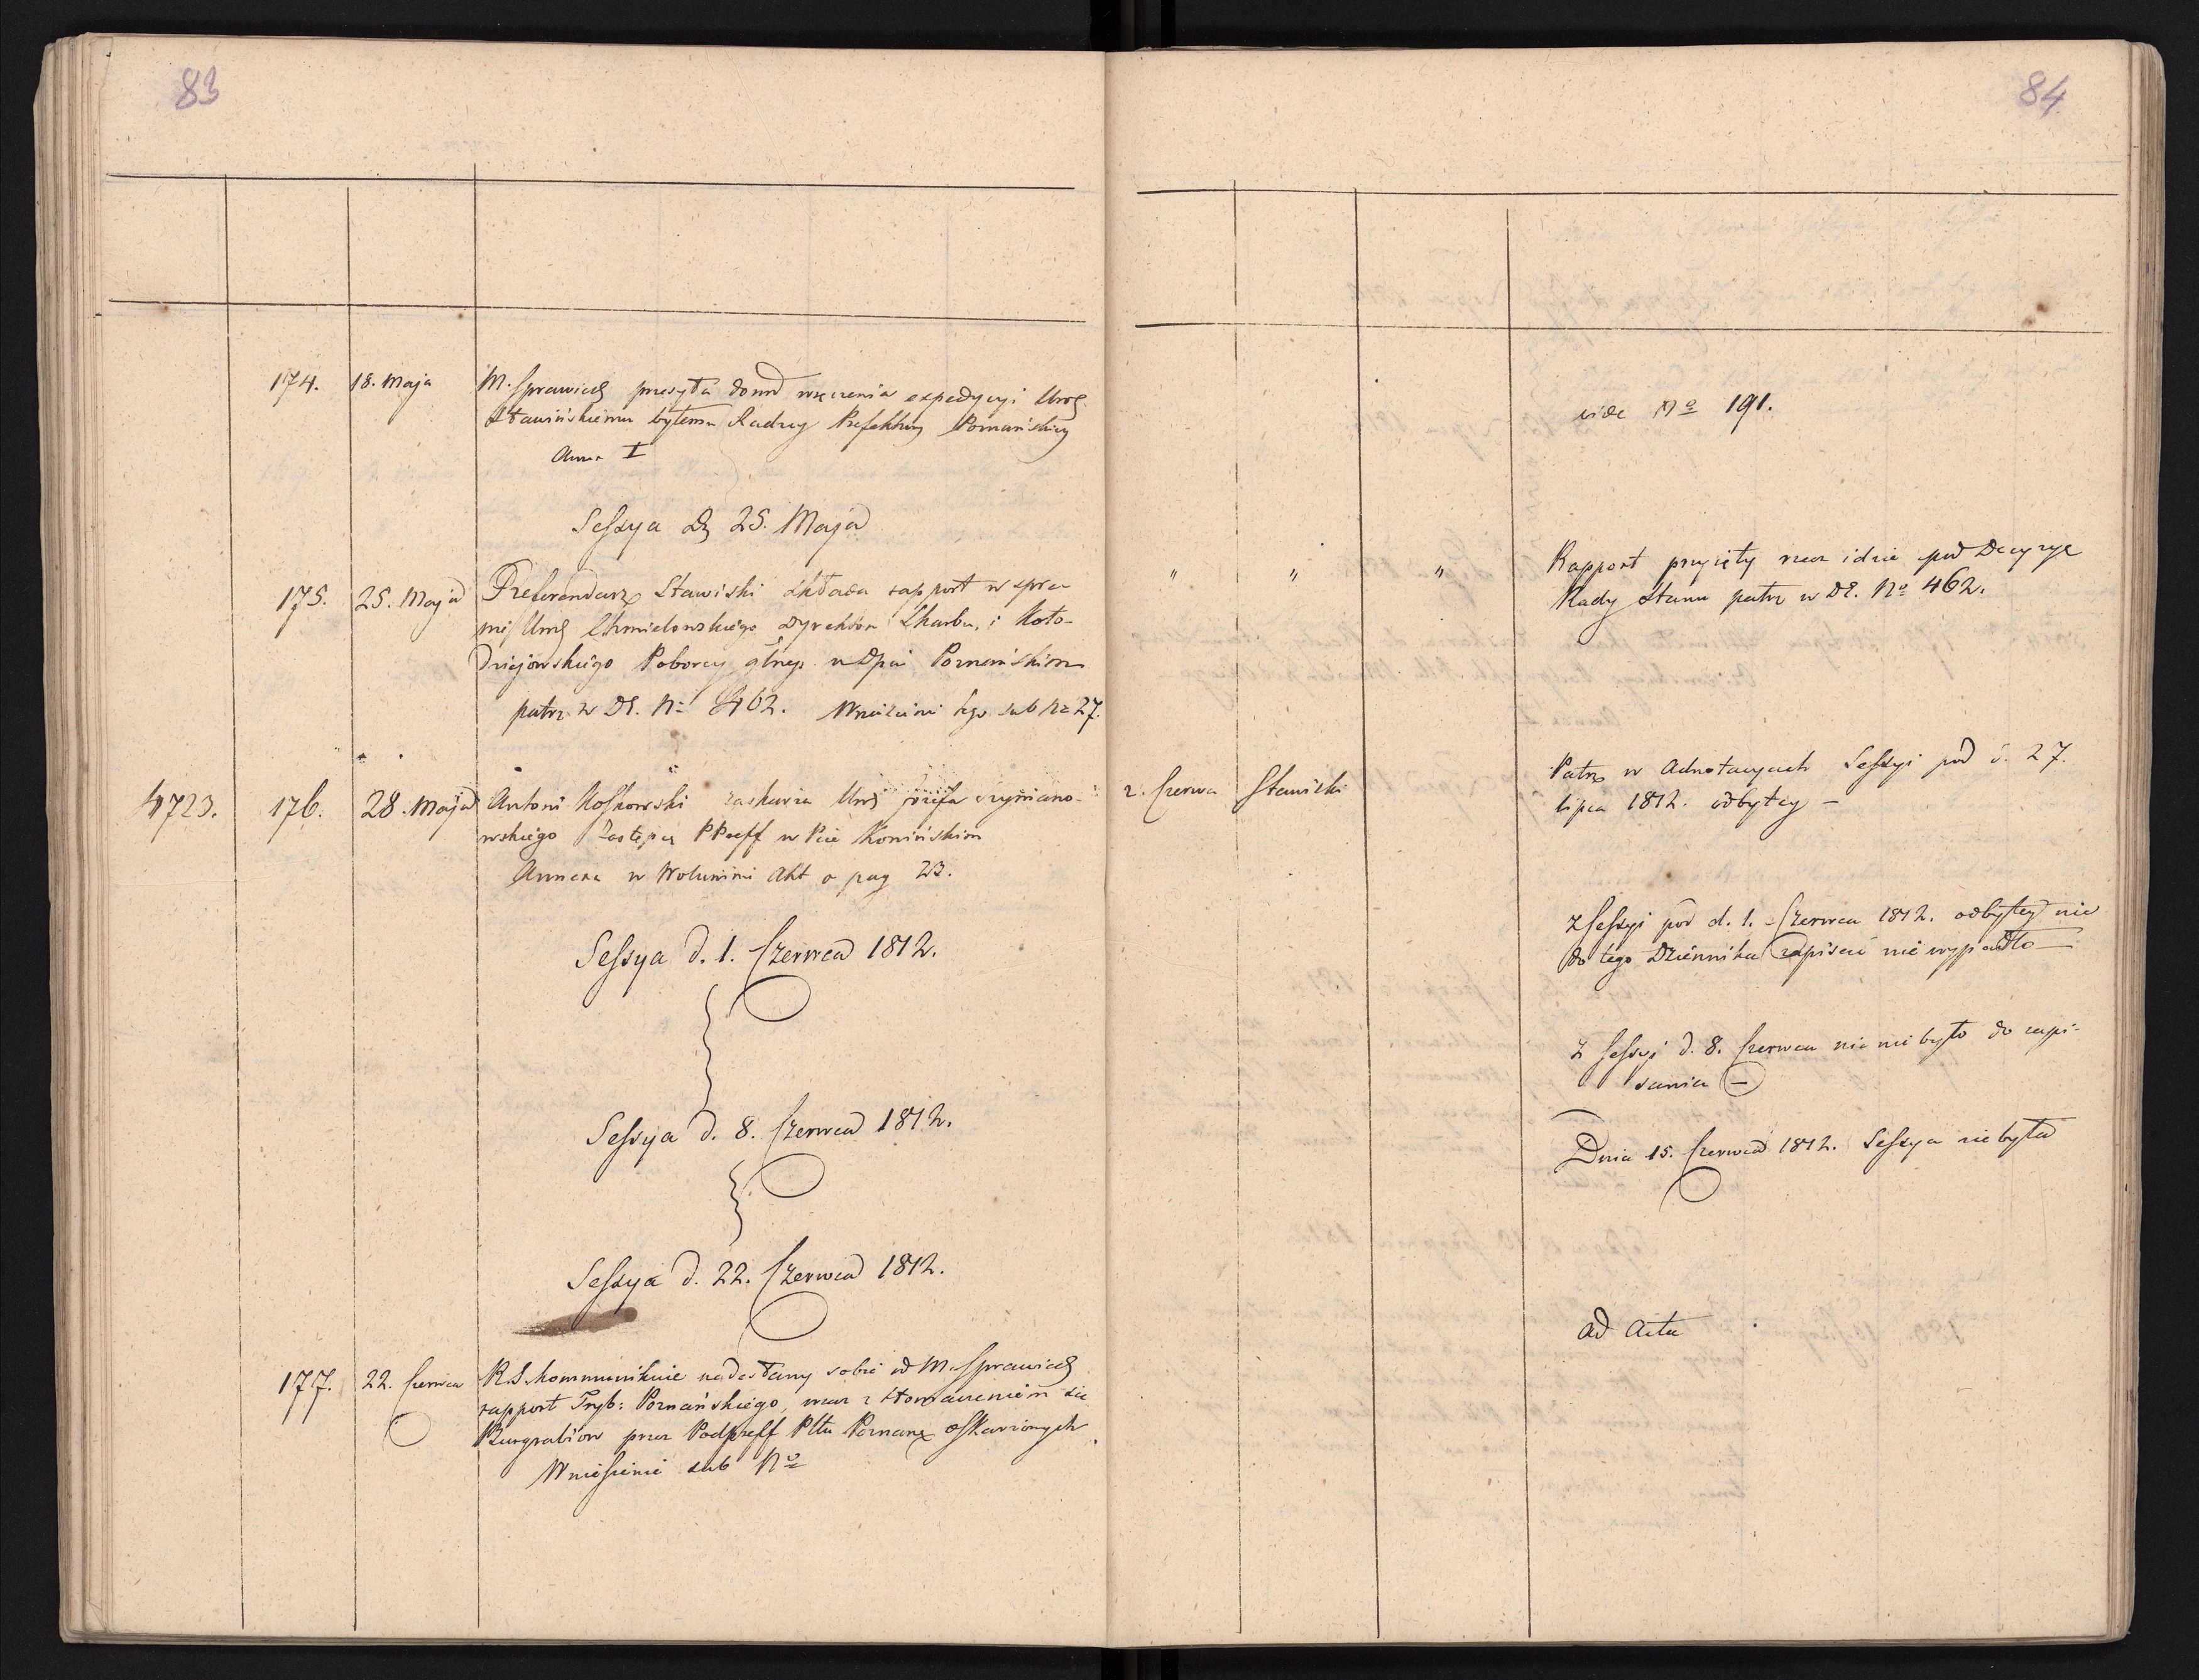 83
174. 18. Maja M. Sprawiedl przesyła dowód wręczenia expedycyi Urod.
Stawińskiemu byłemu Radzcy Prefektury Poznańskiey
Annex I
Sessya d. 25. Maja
175. 25. Maja Referendarz Stawiski składa rapport w spra
wie Urod Chmielewskiego Dyrektora Skarbu, i Koło-
dziejowskiego Poborcy głneg. w Dpcie Poznańskim
patrz w Dz. No 462. Wniesienie tego sub No 27.
4723. 176. 28. Maja Antoni Koszkowski zaskarża Urod Józefa
wskiego Zastępcę PPreff w Pcie Konińskim
Annexa w Woluminie Akt a pag 23.
Sessya d. 1. Czerwca 1812.
Sessya d. 8. Czerwca 1812.
Sessya d. 22. Czerwca 1812.
177. 22. Czerwca R.S. kommunikuie nadesłany sobie od M. Sprawiedl
rapport Tryb: Poznańskiego, wraz z tłomaczeniem się
Burgrabiów przez Podpreff Pttu Poznańs oskarżonych
Wniesienie sub No
84
vide No 191.
" " " Rapport przyięty wraz idzie pod Decyzyę
Rady Stanu patrz w Dz. No 462.
2. Czerwca Stawiski Patrz w Adnotacyach Sessyi pod d. 27.
lipca 1812. odbytey –
Z Sessyi pod d. 1. Czerwca 1812. odbytey nic
do tego Dziennika zapisać nie wypadło –
Z Sessyi d. 8. Czerwca nic nie było do zapi-
sania –
Dnia 15. Czerwca 1812. Sessya nie była
ad Acta